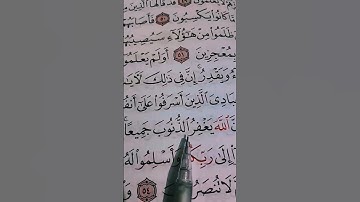 يَعْلَمُونَ ۝ قَدْ قَالَهَا الَّذِينَ
مَّا كَانُوا۟ يَكْسِبُونَ ۝٥٠ فَأَصَابَهُمْ
ظَلَمُوا۟ مِنْ هَٰٓؤُلَآءِ سَيُصِيبُهُمْ
بِمُعْجِزِينَ ۝٥١ أَوَلَمْ يَعْلَمُوٓا۟
وَيَقْدِرُ ۚ إِنَّ فِى ذَٰلِكَ لَـَٔايَٰ
عِبَادِىَ ٱلَّذِينَ أَسْرَفُوا۟ عَلَىٰٓ أَنفُ
ٱللَّهَ يَغْفِرُ ٱلذُّنُوبَ جَمِيعًا ۚ
إِلَىٰ رَبِّكُمْ وَأَسْلِمُوا۟ لَهُۥ
لَا تُنصَرُونَ ۝٥٤